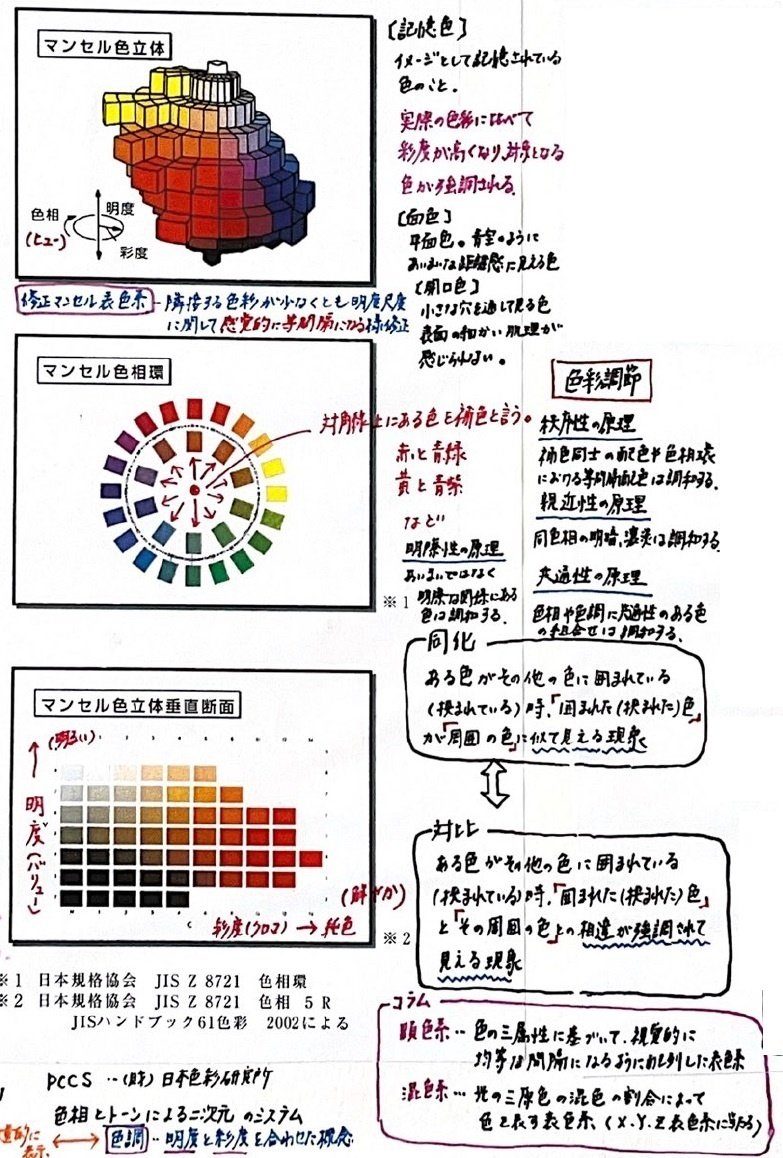 マンセル色立体
色相
(ヒュー)
明度
彩度
修正マンセル表色系 - 隣接する色彩が少なくとも明度尺度
に関して感覚的に等間隔になる様修正
[記憶色]
イメージとして記憶されている
色のこと。
実際の色彩に比べて
彩度が高くなり、対象となる
色が強調される。
[面色]
平面色。青空のように
あいまいな距離感に見える色
[開口色]
小さな穴を通して見る色
表面の細かい肌理が
感じられない。
マンセル色相環
対角線上にある色を補色と言う。
赤と青緑
黄と青紫
など
明瞭性の原理
あいまいではなく
明瞭な関係にある
色は調和する。
※1
色彩調節
秩序性の原理
補色同士の配色や色相環
における等間隔配色は調和する。
親近性の原理
同色相の明暗、濃淡は調和する。
共通性の原理
色相や色調に共通性のある色
の組合せは調和する。
同化
ある色がその他の色に囲まれている
(挟まれている)時、「囲まれた(挟まれた)色」
が「周囲の色」に似て見える現象
対比
ある色がその他の色に囲まれている
(挟まれている)時、「囲まれた(挟まれた)色」
と「その周囲の色」との相違が強調されて
見える現象
マンセル色立体垂直断面
(明るい)
明度(バリュー)
(鮮やか)
彩度(クロマ) → 純色
※2
※1 日本規格協会 JIS Z 8721 色相環
※2 日本規格協会 JIS Z 8721 色相 5R
JISハンドブック61色彩 2002による
コラム
顕色系… 色の三属性に基づいて、視覚的に
均等な間隔になるように配列した表色系
混色系… 光の三原色の混色の割合によって
色を表す表色系 (X.Y.Z表色系に当たる)
PCCS …(財)日本色彩研究所
色相とトーンによる二次元のシステム
色調‥明度と彩度を合わせた概念